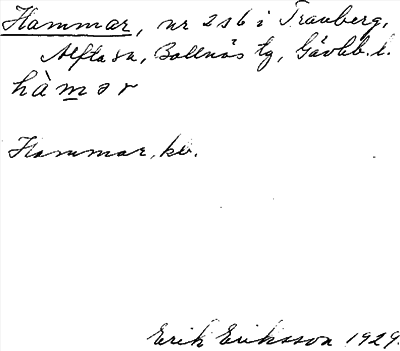 Hammar, nr 2 s 6 i Tranberg,
Alfta sn, Bollnäs tg, Gävleb. l.
hàmər
Hammar, kv.
Erik Eriksson 1929.